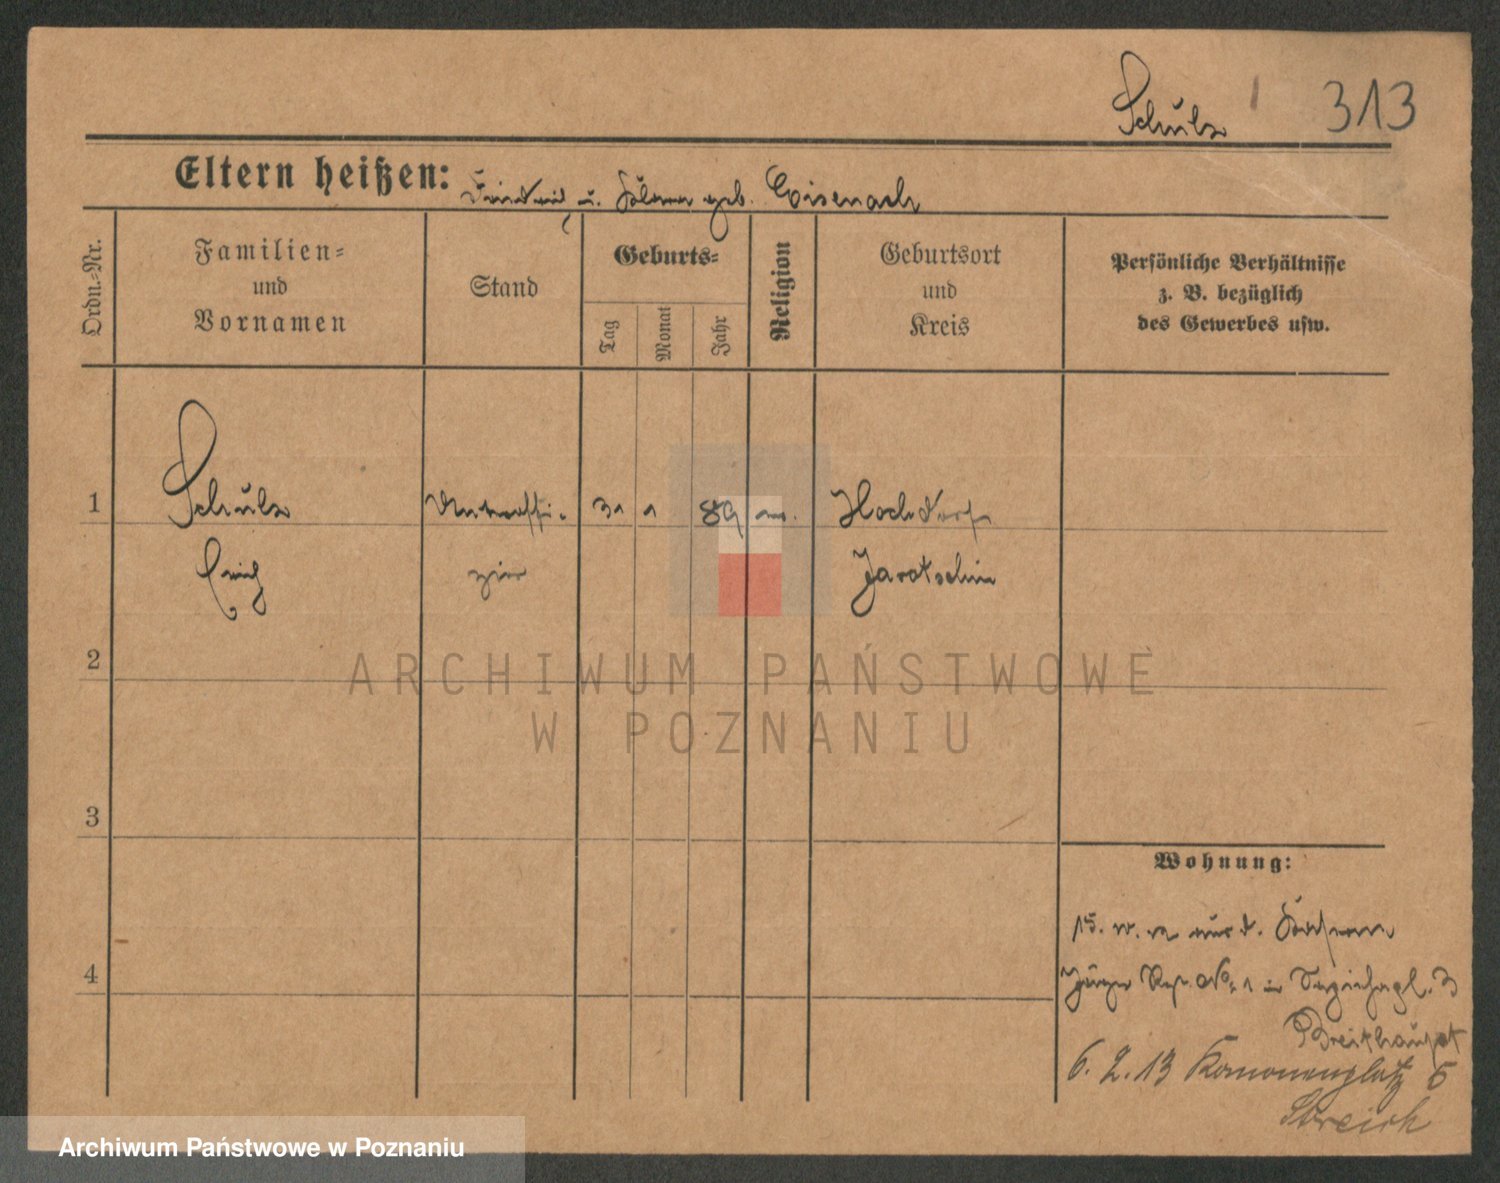 Schulz 313
Eltern heißen: Friedrich u. geb. Eisenach
Ordn.-Nr.
Familien-
und
Vornamen
Stand
Geburts-
Tag
Monat
Jahr
Religion
Geburtsort
und
Kreis
Persönliche Verhältnisse
z. B. bezüglich
des Gewerbes usw.
1 Schulz Unteroffi- 31 1 89 ev. Hochdorf
Erich zier Jarotschin
2
3
4
Wohnung:
15.
Jäger No. 1 in 3
Breithaupt
6.2.13 Kanonenplatz 5
Streich
ARCHIWUM PAŃSTWOWE
W POZNANIU
Archiwum Państwowe w Poznaniu